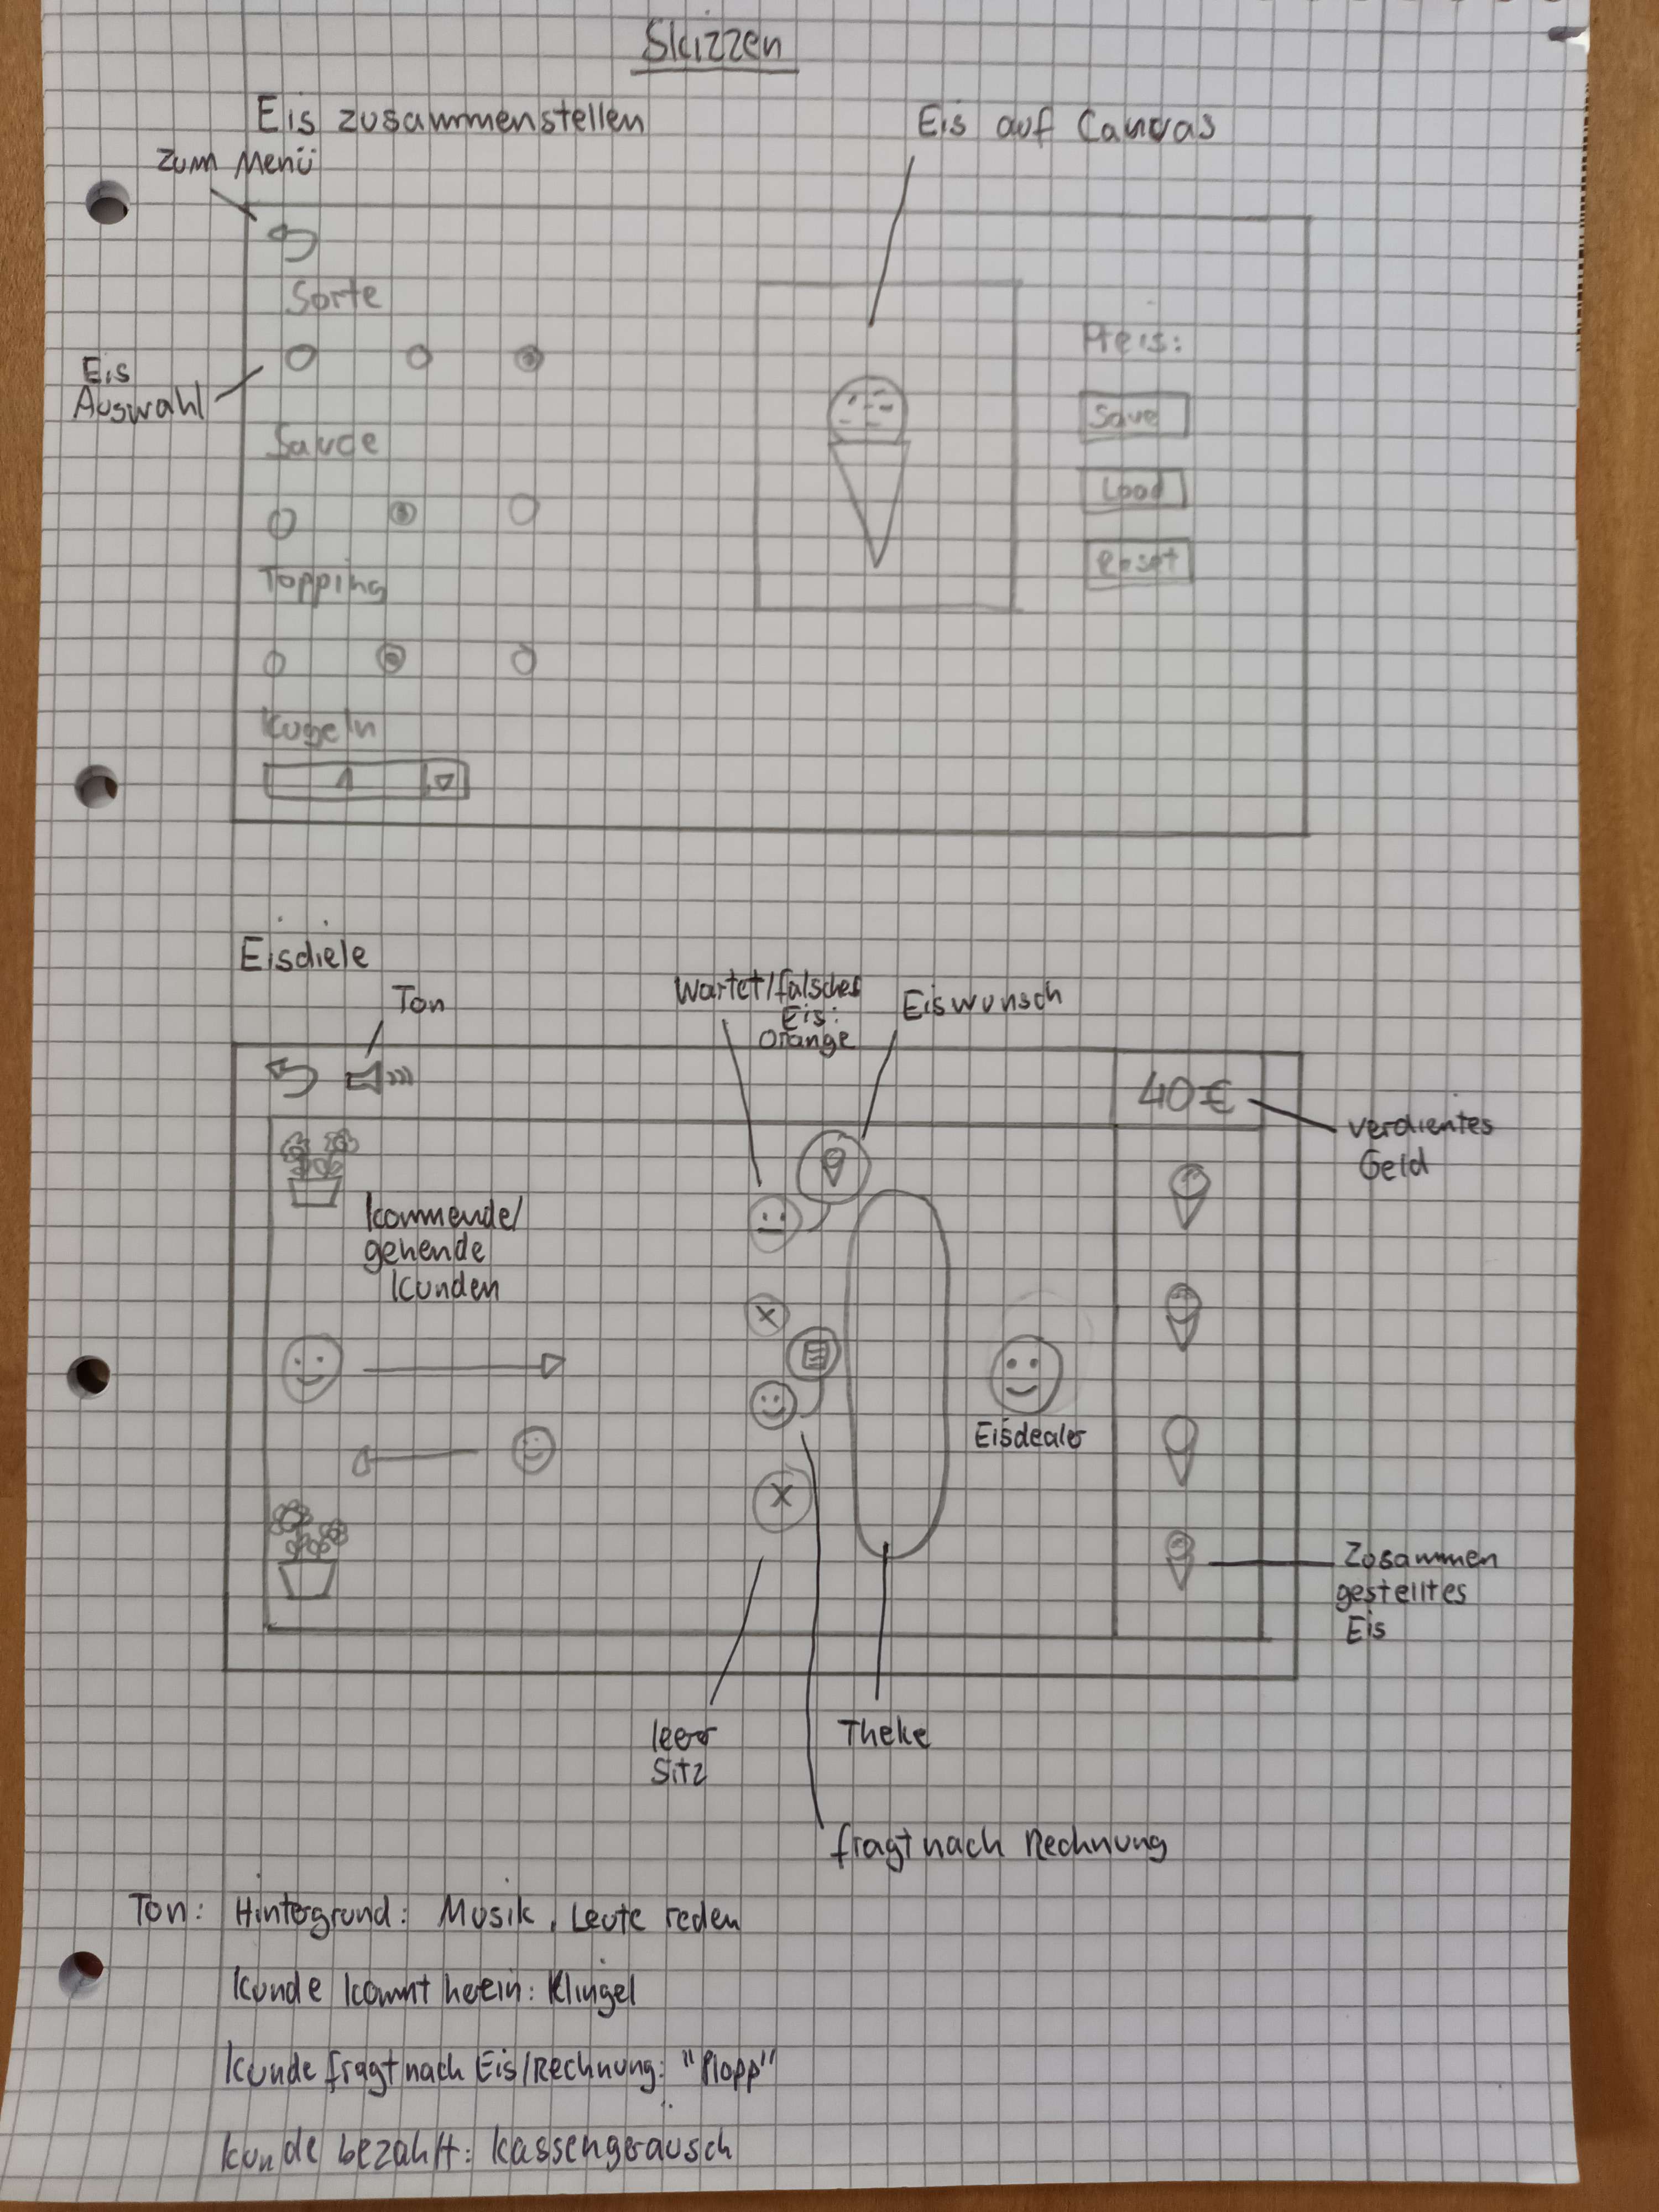 Skizzen
Eis zusammenstellen
Eis auf Canvas
zum Menü
Sorte
Eis
Auswahl
Preis:
Save
Sauce
Load
Reset
Topping
Kugeln
1
Eisdiele
Ton
Wartet/falsches
Eis:
Orange
Eiswunsch
40€
verdientes
Geld
kommende/
gehende
Kunden
Eisdealer
Zusammen
gestelltes
Eis
leer
Sitz
Theke
fragt nach Rechnung
Ton: Hintergrund: Musik, Leute reden
Kunde kommt herein: Klingel
Kunde fragt nach Eis/Rechnung: "Plopp"
Kunde bezahlt: Kassengeräusch